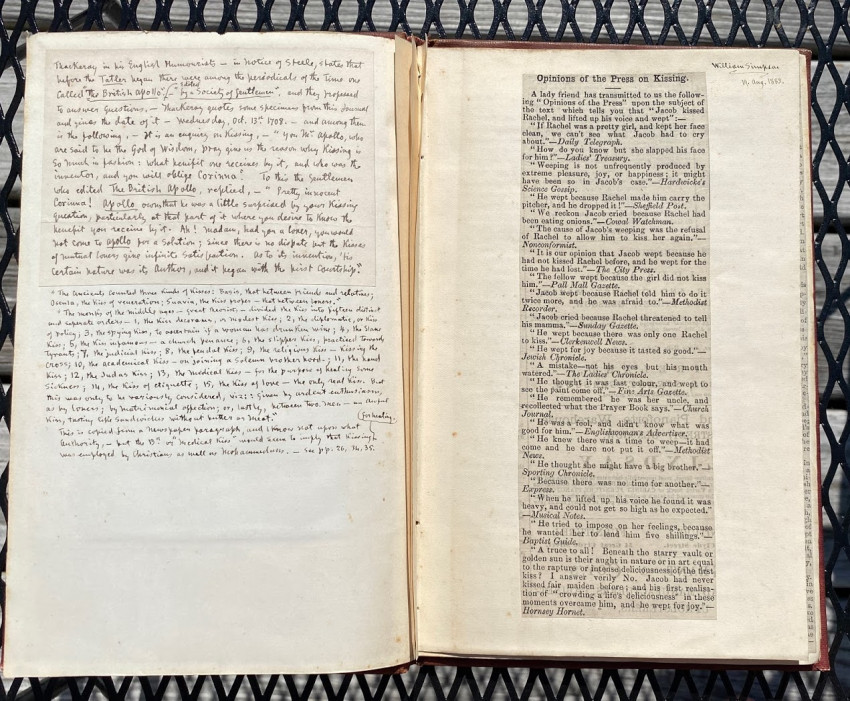 Thackeray in his English Humourists – in notice of Steele, states that
before the Tatler began there were among the periodicals of the time one
Called "The British Apollo", edited "by a Society of Gentlemen", and they proposed
to answer questions. – Thackeray quotes some specimens from this Journal
and gives the date of it – Wednesday, Oct. 13th 1708. – and among them
is the following. – It is an enquiry on Kissing, – "You Mr. Apollo, who
are said to be the God of Wisdom, pray give us the reason why Kissing is
So much in fashion: what benefit one receives by it, and who was the
inventor, and you will oblige Corinna". To this the Gentlemen
who edited The British Apollo, replied, – "Pretty, innocent
Corinna! Apollo owns that he was a little surprised by your Kissing
question, particularly at that part of it where you desire to Know the
benefit you receive by it. Ah! Madam, had you a lover, you would
not come to apollo for a Solution; Since there is no dispute but the Kisses
of mutual lovers give infinite Satisfaction. As to its invention, 'tis
Certain nature was its Author, and it began with the first Courtship."
"The Ancients counted three kinds of Kisses: Basia, that between friends and relatives;
Oscula, the Kiss of veneration; Suavia, the Kiss proper – that between lovers."
"The monks of the middle ages – great theorists – divided the Kiss into fifteen distinct
and separate orders – 1, the Kiss decorous, or modest Kiss; 2, the diplomatic, or Kiss
of policy; 3, the spying Kiss, to ascertain if a woman has drunken wine; 4, the Slave
Kiss; 5, the Kiss infamous – a church penance; 6, the Slipper Kiss, practised towards
tyrants; 7, the judicial Kiss; 8, the feudal Kiss; 9, the religious Kiss – Kissing the
cross; 10, the academical Kiss – on joining a Solemn brotherhood –; 11, the hand
Kiss; 12, the Judas Kiss; 13, the Medical Kiss – for the purpose of healing Some
Sickness; 14, the Kiss of etiquette; 15, the Kiss of love – the only real Kiss. But
this was only to be variously considered, viz: : Given by ardent enthusiasm,
as by lovers; by matrimonial affection; or, lastly, between two men – an awful
Kiss, tasting like Sandwiches without butter or meat."
This is copied from a Newspaper paragraph, and I know not upon what
for healing,
Authority, – but the 13th or "Medical Kiss" would seem to imply that Kissing
was employed by Christians as well as
– See pp. 26, 34, 35.
William Simpson
14, Aug. 1883.
Opinions of the Press on Kissing.
A lady friend has transmitted to us the follow-
ing "Opinions of the Press" upon the subject of
the text which tells you that "Jacob kissed
Rachel, and lifted up his voice and wept":—
"If Rachel was a pretty girl, and kept her face
clean, we can't see what Jacob had to cry
about."—Daily Telegraph.
"How do you know but she slapped his face
for him?"—Ladies' Treasury.
"Weeping is not unfrequently produced by
extreme pleasure, joy, or happiness; it might
have been so in Jacob's case."—Hardwicke's
Science Gossip.
"He wept because Rachel made him carry the
pitcher, and he dropped it!"—Sheffield Post.
"We reckon Jacob cried because Rachel had
been eating onions."—Cowal Watchman.
"The cause of Jacob's weeping was the refusal
of Rachel to allow him to kiss her again."—
Nonconformist.
"It is our opinion that Jacob wept because he
had not kissed Rachel before, and he wept for the
time he had lost."—The City Press.
"The fellow wept because the girl did not kiss
him."—Pall Mall Gazette.
"Jacob wept because Rachel told him to do it
twice more, and he was afraid to."—Methodist
Recorder.
"Jacob cried because Rachel threatened to tell
his mamma."—Sunday Gazette.
"He wept because there was only one Rachel
to kiss."—Clerkenwell News.
"He wept for joy because it tasted so good."—
Jewish Chronicle.
"A mistake—not his eyes but his mouth
watered."—The Ladies' Chronicle.
"He thought it was fast colour, and wept to
see the paint come off."—Fine Arts Gazette.
"He remembered he was her uncle, and
recollected what the Prayer Book says."—Church
Journal.
"He was a fool, and didn't know what was
good for him."—Englishwoman's Advertiser.
"He knew there was a time to weep—it had
come and he dare not put it off."—Methodist
News.
"He thought she might have a big brother."—
Sporting Chronicle.
"Because there was no time for another."—
Express.
"When he lifted up his voice he found it was
heavy, and could not get so high as he expected."
—Musical Notes.
"He tried to impose on her feelings, because
he wanted her to lend him five shillings."—
Baptist Guide.
"A truce to all! Beneath the starry vault or
golden sun is their aught in nature or in art equal
to the rapture or intense deliciousness of the first
kiss? I answer verily No. Jacob had never
kissed fair maiden before; and his first realisa-
tion of "crowding a life's deliciousness" in these
moments overcame him, and he wept for joy."—
Hornsey Hornet.